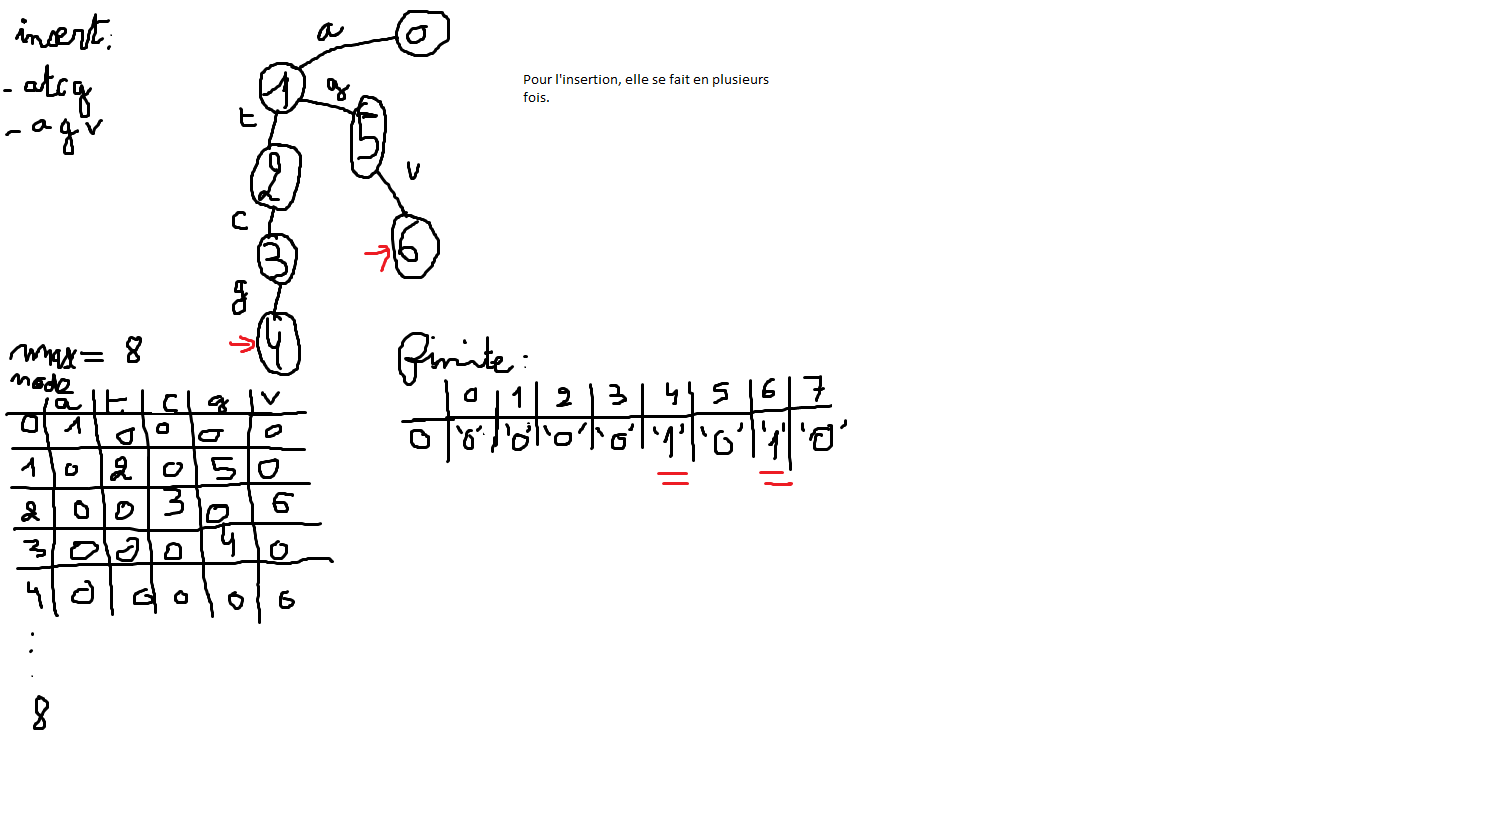 insert:
- atcg
- agv
a
0
1
g
t
5
2
v
c
3
6
g
4
Pour l'insertion, elle se fait en plusieurs
fois.
nmax = 8
node
a t c g v
0 1 0 0 0 0
1 0 2 0 5 0
2 0 0 3 0 6
3 0 0 0 4 0
4 0 0 0 0 0
8
finite:
0 1 2 3 4 5 6 7
0 '0' '0' '0' '0' '1' '0' '1' '0'